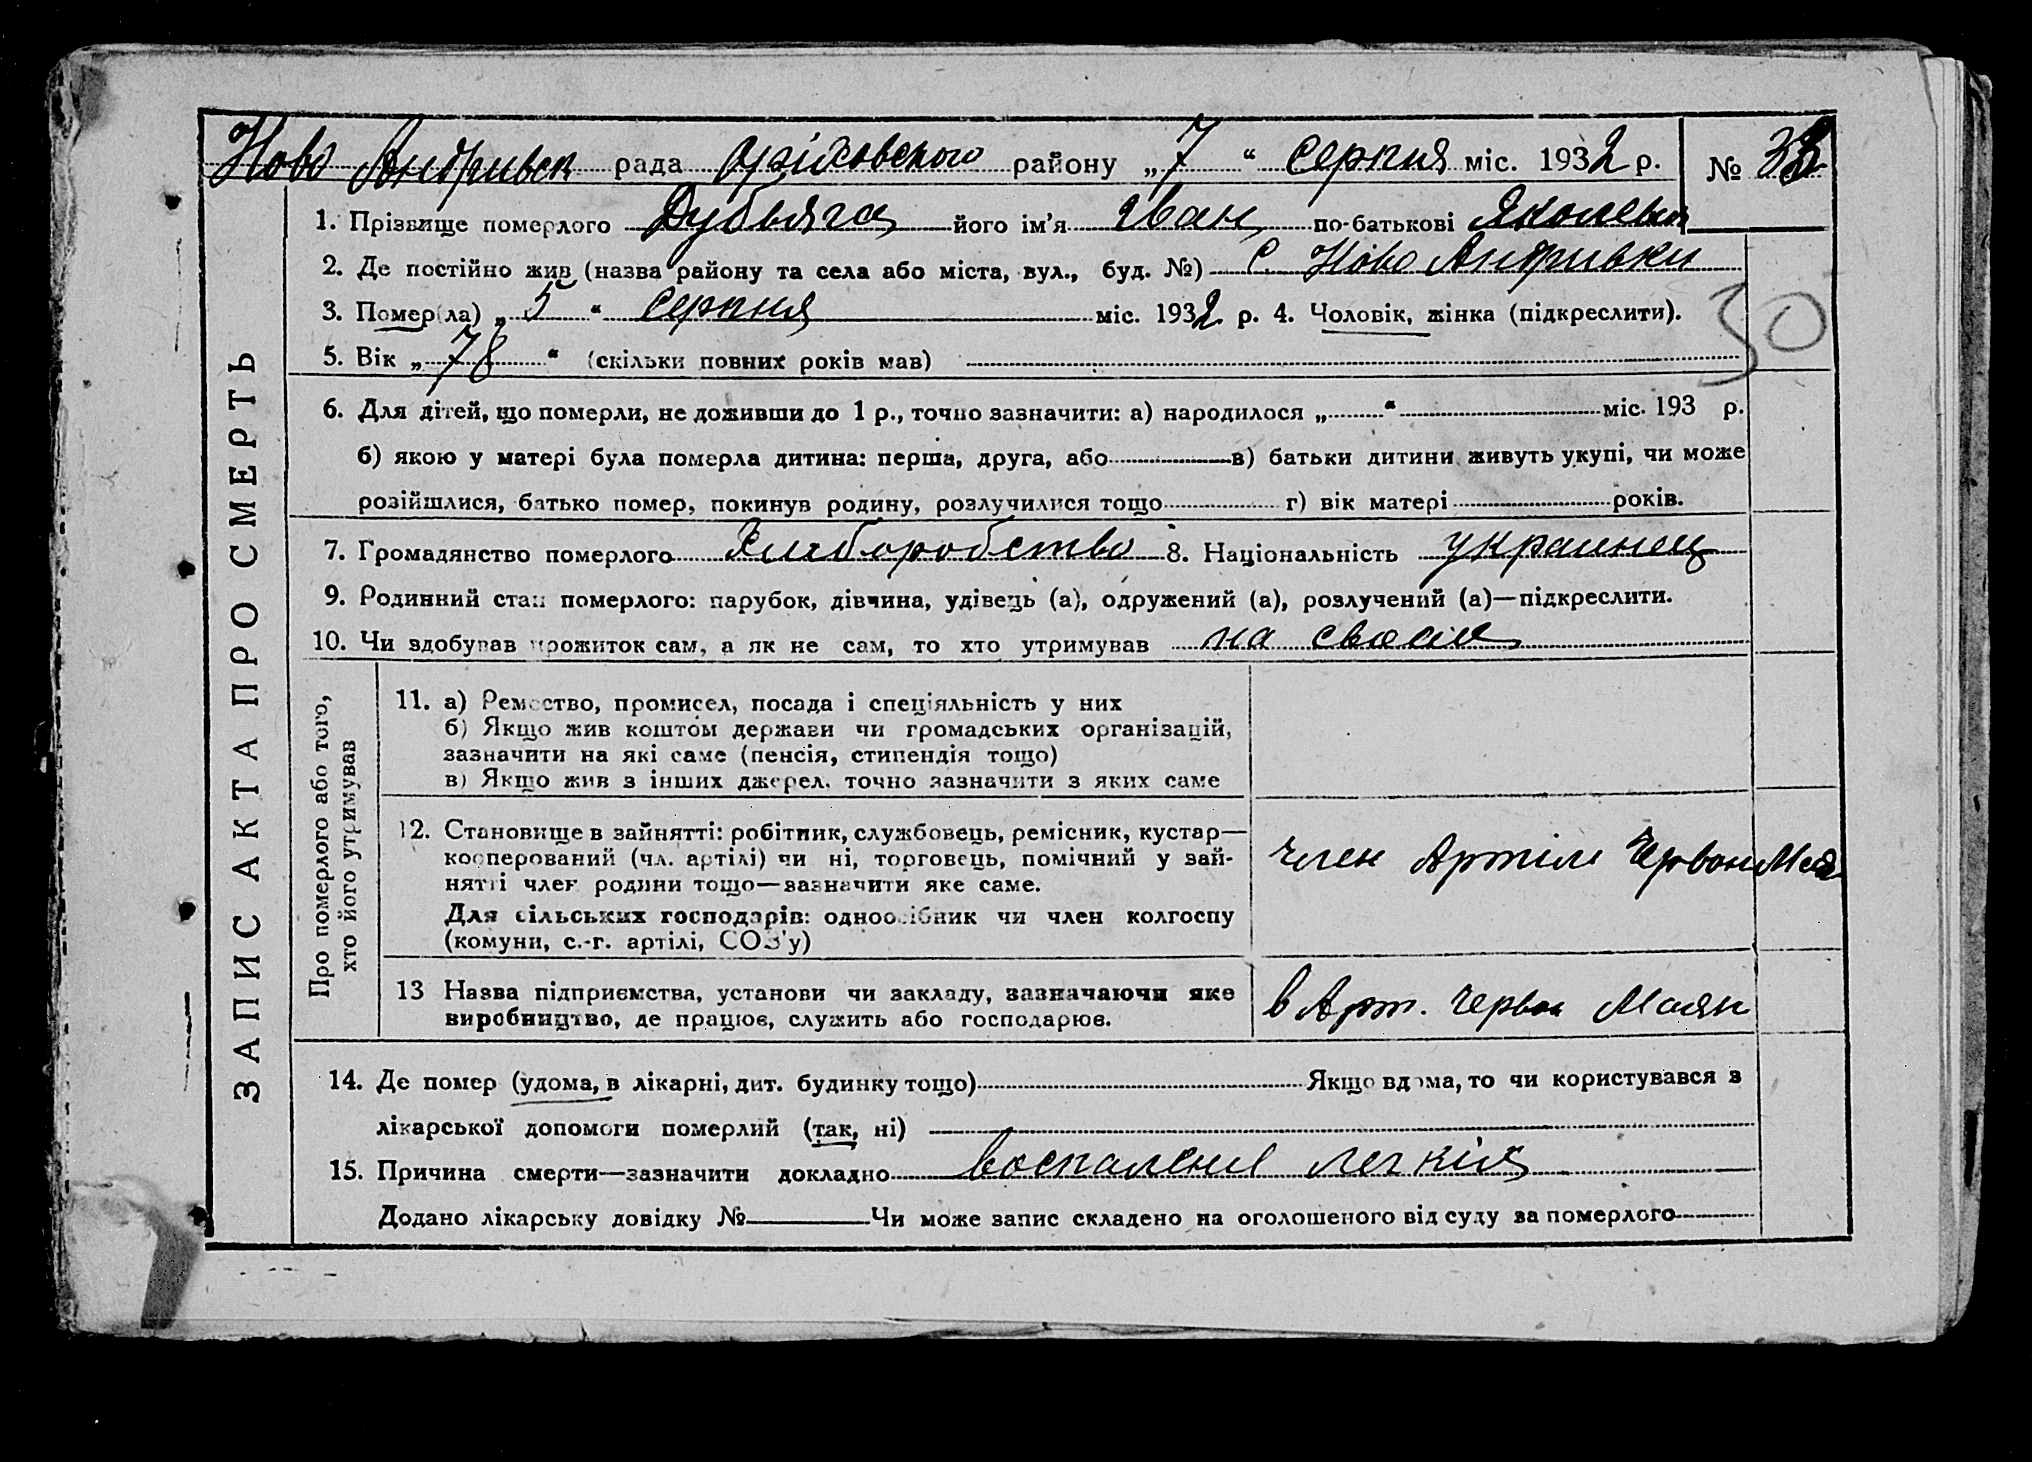 Ново Андривск рада Оріховського району „7“ серпня міс. 1932 р. №
1. Прізвище померлого Дубняга його ім'я Іван по-батькові
2. Де постійно жив (назва району та села або міста, вул., буд. №) с. Ново Андривки
3. Помер(ла) „5“ серпня міс. 1932 р. 4. Чоловік, жінка (підкреслити).
30
5. Вік „78“ (скільки повних років мав)
6. Для дітей, що померли, не доживши до 1 р., точно зазначити: а) народилося „ “ міс. 193 р.
б) якою у матері була померла дитина: перша, друга, або в) батьки дитини живуть укупі, чи може
розійшлися, батько помер, покинув родину, розлучилися тощо г) вік матері років.
7. Громадянство померлого Хлиборобство 8. Національність украинец
9. Родинний стан померлого: парубок, дівчина, удівець (а), одружений (а), розлучений (а)—підкреслити.
10. Чи здобував прожиток сам, а як не сам, то хто утримував на своем
ЗАПИС АКТА ПРО СМЕРТЬ
Про померлого або того,
хто його утримував
11. а) Ремество, промисел, посада і спеціяльність у них
б) Якщо жив коштом держави чи громадських організацій,
зазначити на які саме (пенсія, стипендія тощо)
в) Якщо жив з інших джерел, точно зазначити з яких саме
12. Становище в зайнятті: робітник, службовець, ремісник, кустар—
коoперований (чл. артілі) чи ні, торговець, помічний у зай-
нятті член родини тощо—зазначити яке саме.
Для сільських господарів: одноосібник чи член колгоспу
(комуни, с.-г. артілі, СОЗ'у)
член Артіли Червон Маяк
13 Назва підприємства, установи чи закладу, зазначаючи яке
виробництво, де працює, служить або господарює.
в Арт. Червон Маяк
14. Де помер (удома, в лікарні, дит. будинку тощо) Якщо вдома, то чи користувався з
лікарської допомоги померлий (так, ні)
15. Причина смерти—зазначити докладно воспаление легких
Додано лікарську довідку № Чи може запис складено на оголошеного від суду за померлого